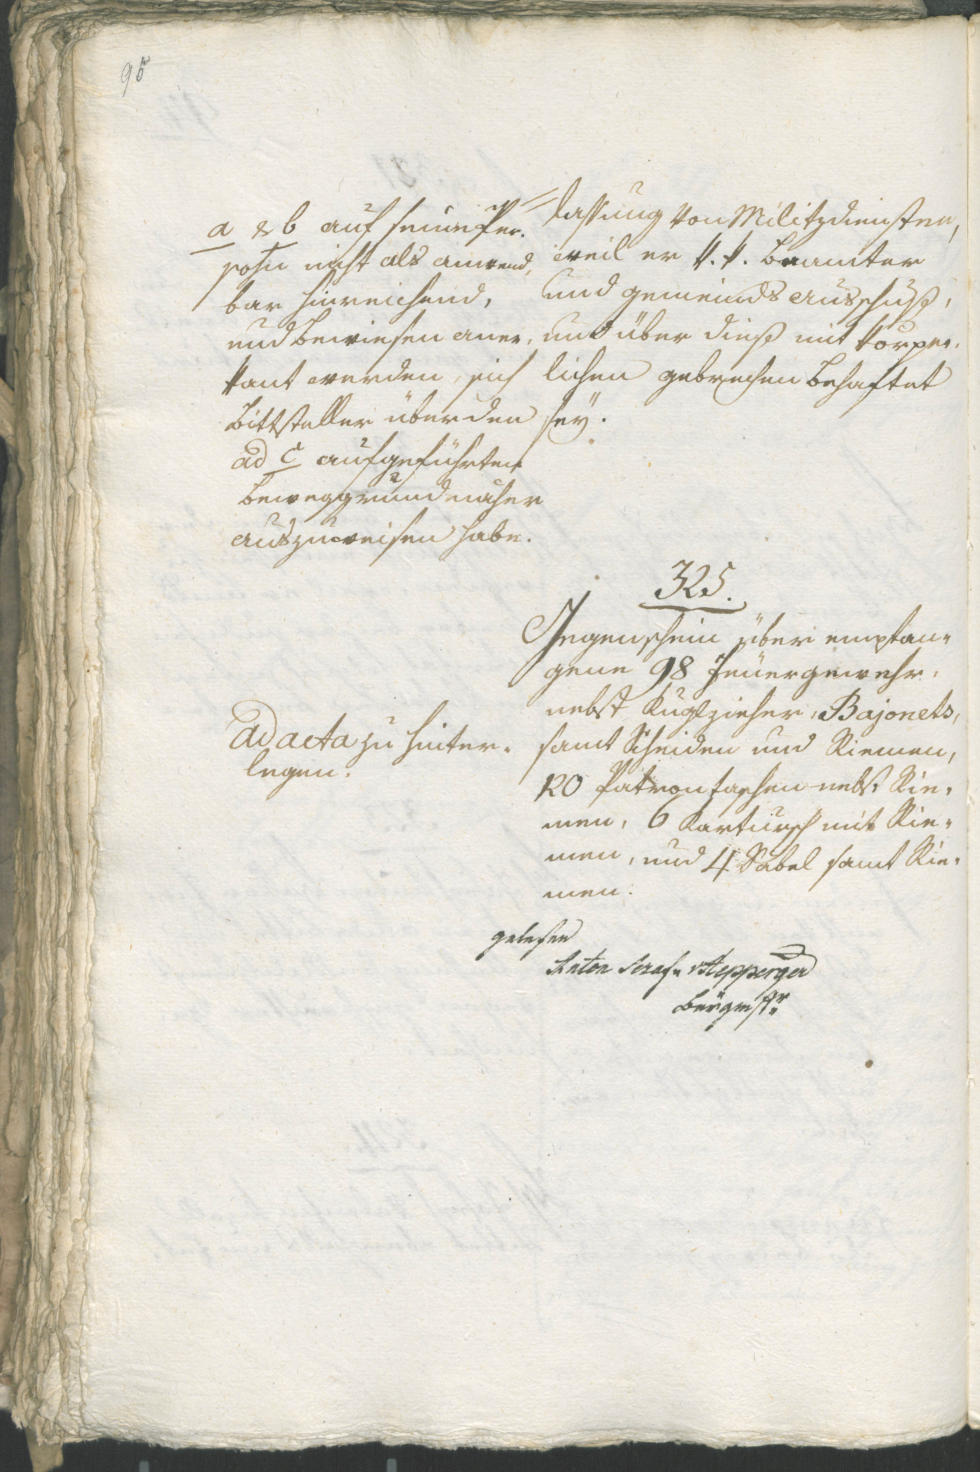 95
a & b auf seine Per¬
sohn nicht als anwend¬
bar hinreichend,
und bewiesen aner¬
kant werden, sich
Bittsteller über den
ad c aufgeführten
Beweggrund näher
auszuweisen habe.
lassung von Militzdiensten,
weil er k. k. Beamter
und gemeinds Ausschuß,
und über dieß mit körper¬
lichen gebrechen behaftet
seÿ.
325.
Gegenschein über empfan¬
gene 98 Feuergewehr,
nebst Kuglzieher, Bajonets,
samt Scheiden und Riemen,
120 Patrontaschen nebst Rie¬
men, 6 Kartusch mit Rie¬
men, und 4 Säbel samt Rie¬
men.
Ad acta zu hinter¬
legen.
gelesen
Anton
Bürgmstr